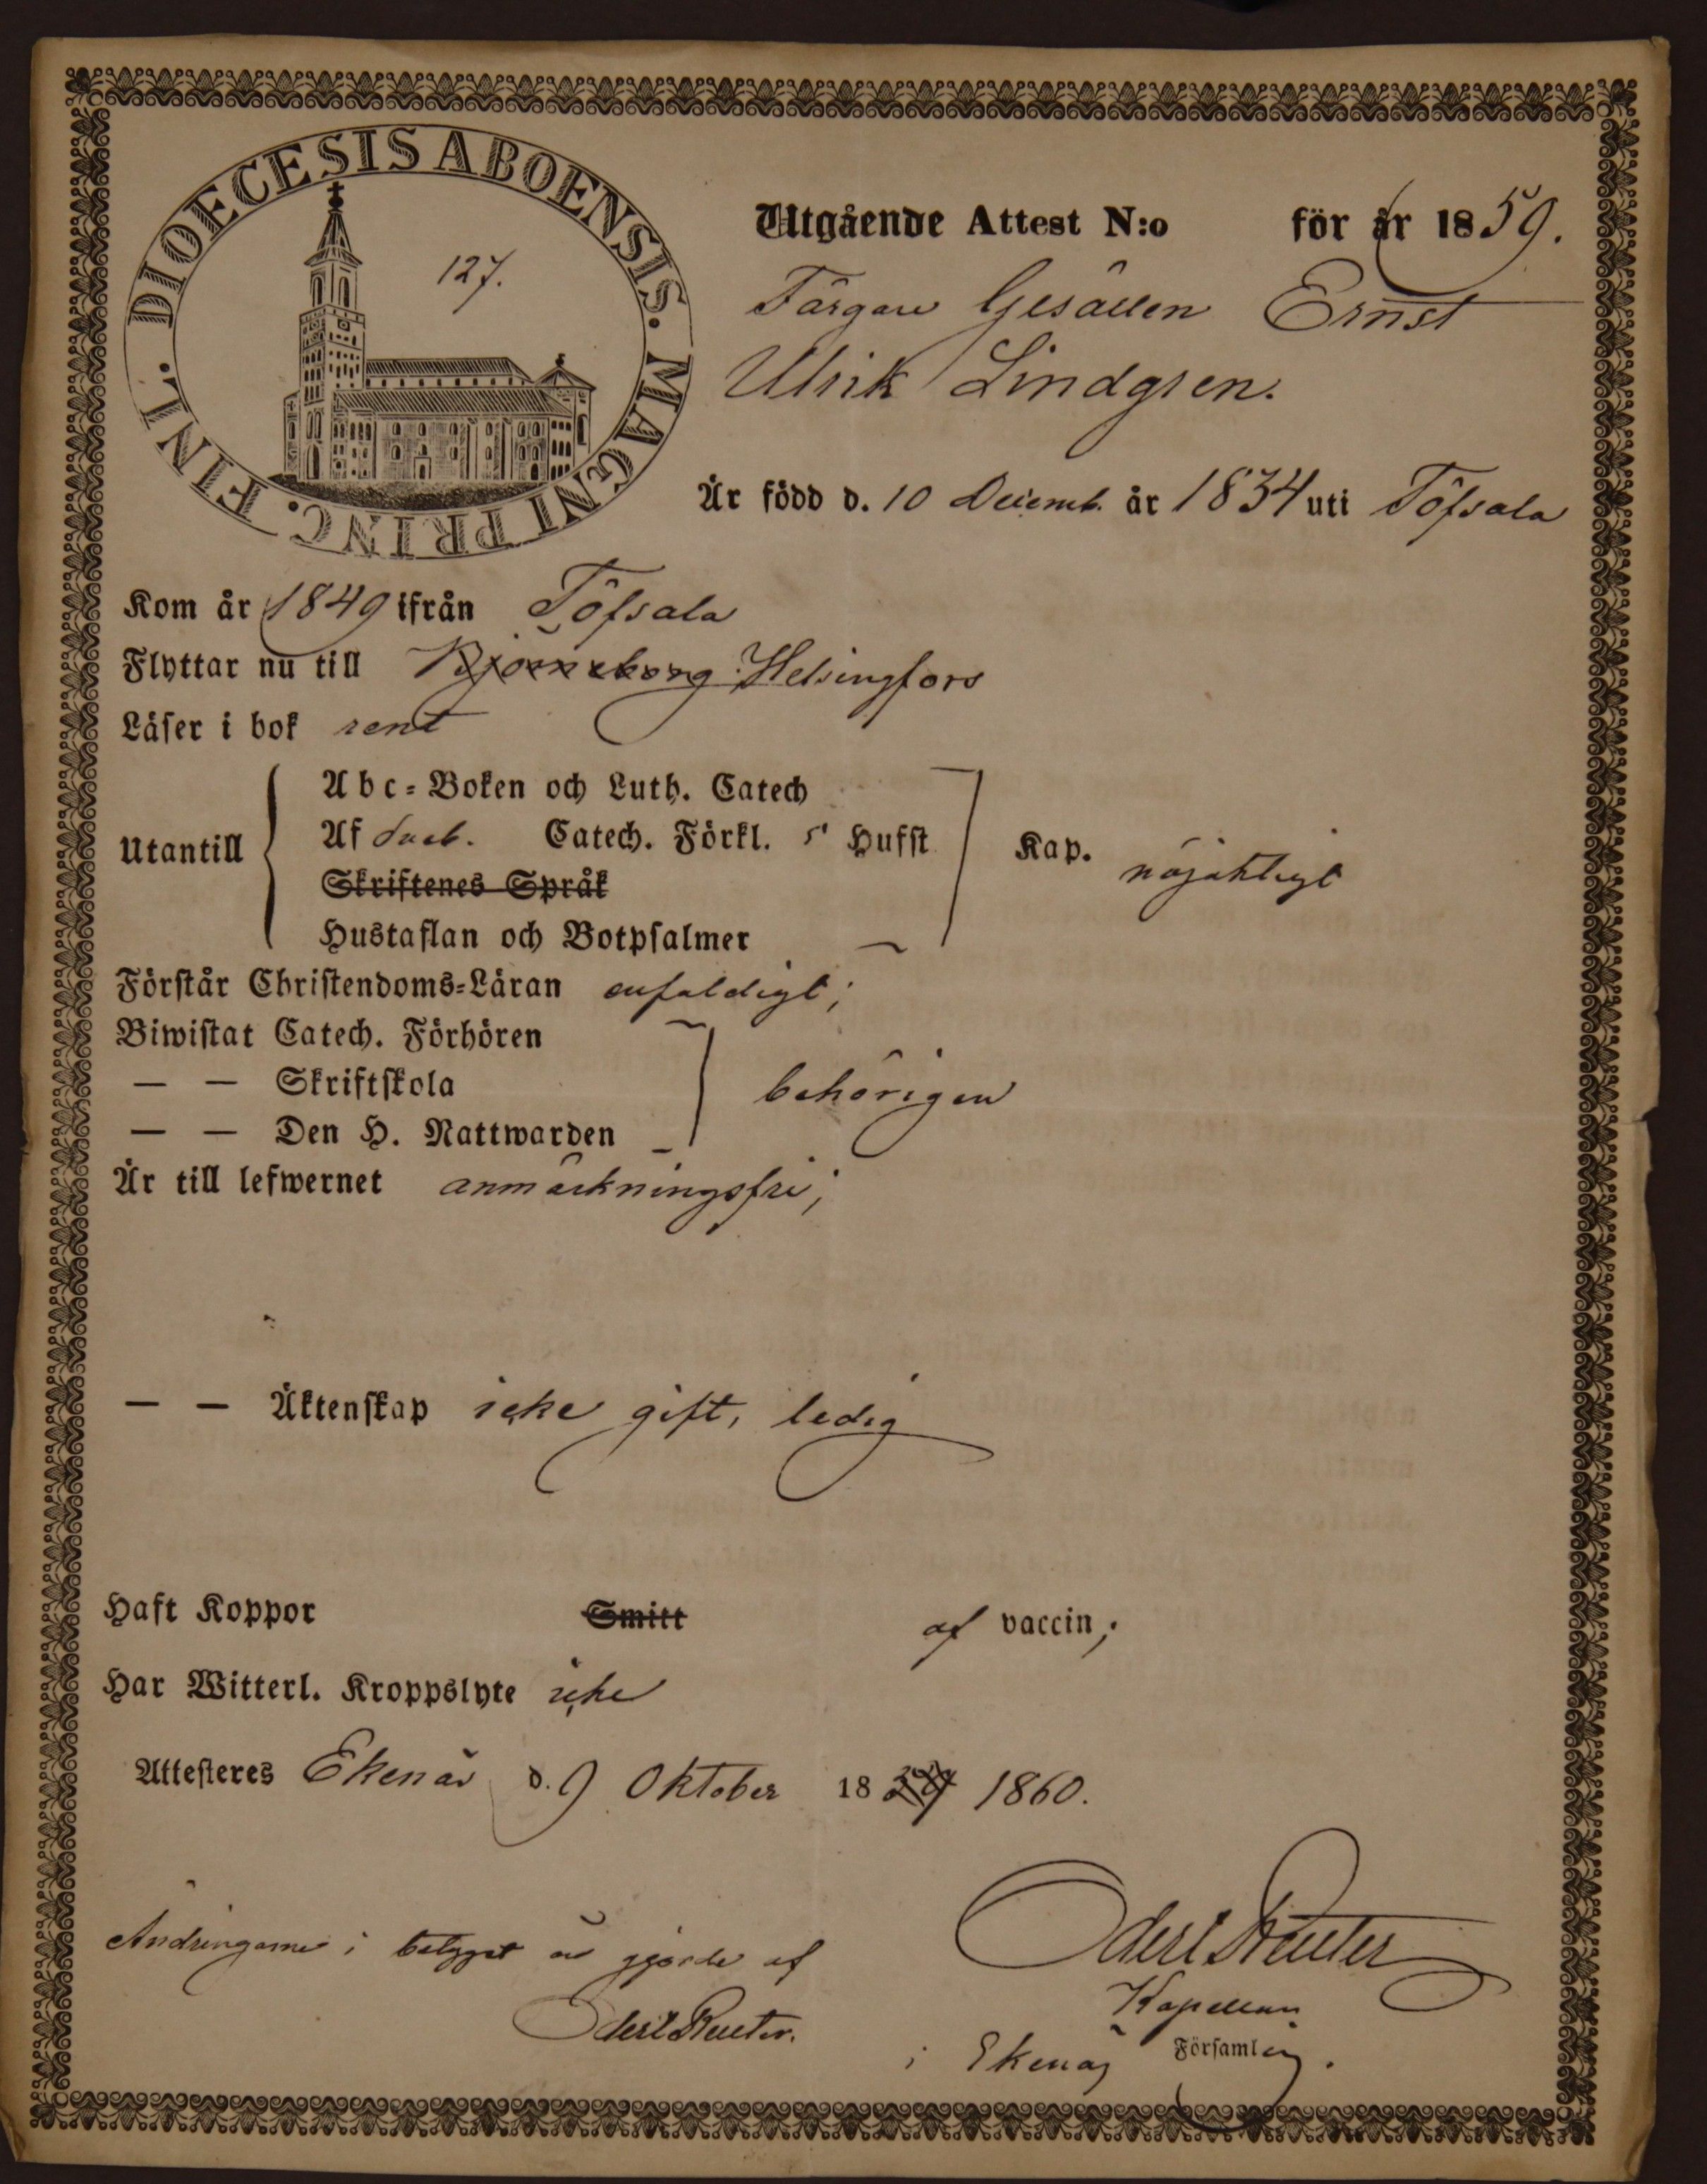 DIOECESIS ABOENSIS. MAGNI PRINC. FINL.
127.
Utgående Attest N:o för år 1859.
Färgare Gesällen Ernst
Ulrik Lindgren.
Är född d. 10 Decemb. år 1834 uti Töfsala
Kom år 1849 ifrån Töfsala
Flyttar nu till Björneborg Helsingfors
Läser i bok rent
Utantill
Abc-Boken och Luth. Catech
Af Sveb. Catech. Förkl. 5 Hufst
Skriftenes Språk
Hustaflan och Botpsalmer
Kap. nöjaktigt
Förstår Christendoms-Läran enfaldigt;
Biwistat Catech. Förhören
— — Skriftskola
— — Den H. Nattwarden
behörigen
Är till lefwernet anmärkningsfri;
— — Äktenskap icke gift, ledig
Haft Koppor Smitt af vaccin;
Har Witterl. Kroppslyte icke
Attesteres Ekenäs d. 9 Oktober 18 1860.
Ändringarne i betyget är gjorde af
Odert Reuter.
Odert Reuter
Kapellan
i Ekenäs Församling.